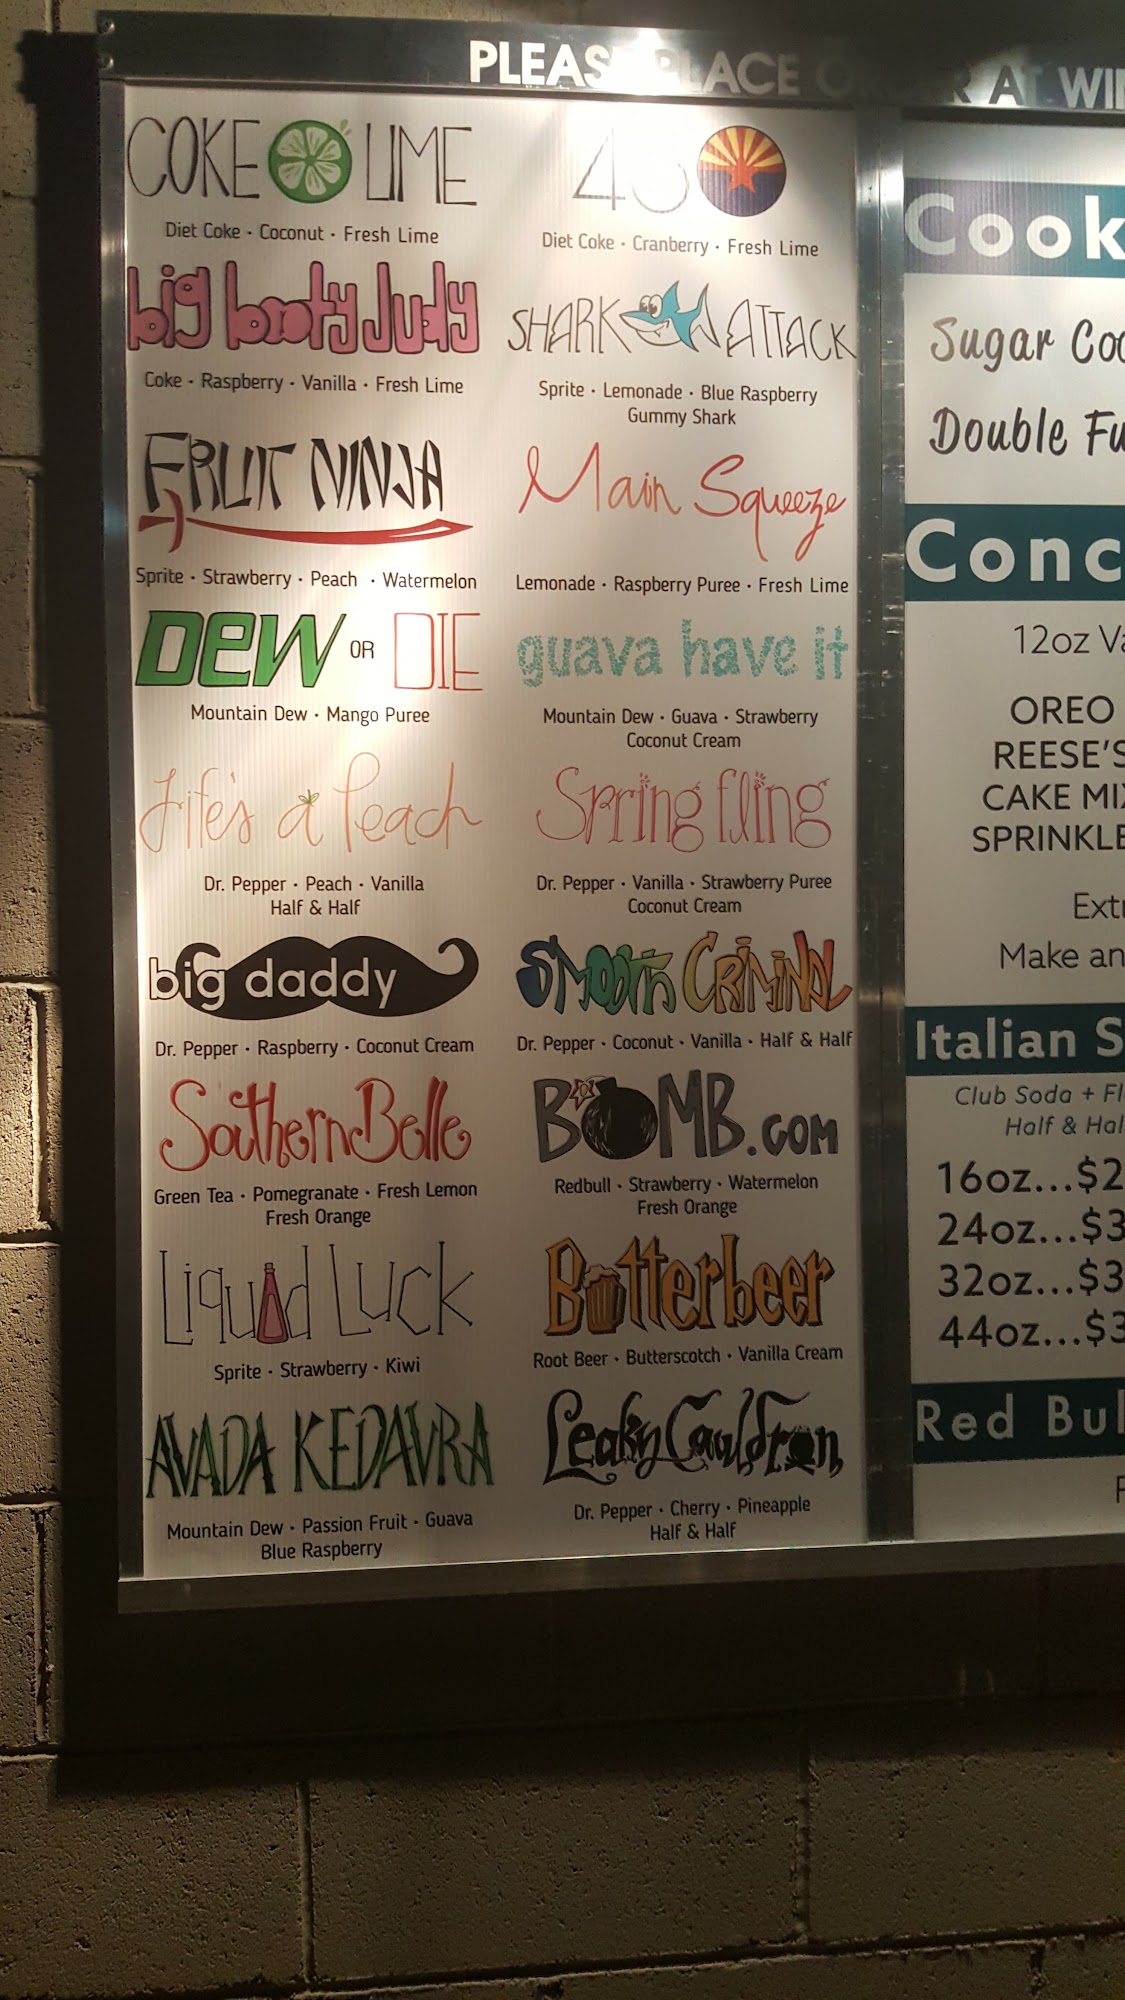 PLEASE PLACE ORDER AT
COKE LIME
Diet Coke · Coconut · Fresh Lime
big booty Judy
Coke · Raspberry · Vanilla · Fresh Lime
FRUIT NINJA
Sprite · Strawberry · Peach · Watermelon
DEW OR DIE
Mountain Dew · Mango Puree
Life's a Peach
Dr. Pepper · Peach · Vanilla
Half & Half
big daddy
Dr. Pepper · Raspberry · Coconut Cream
Southern Belle
Green Tea · Pomegranate · Fresh Lemon
Fresh Orange
Liquid Luck
Sprite · Strawberry · Kiwi
AVADA KEDAVRA
Mountain Dew · Passion Fruit · Guava
Blue Raspberry
48
Diet Coke · Cranberry · Fresh Lime
SHARK ATTACK
Sprite · Lemonade · Blue Raspberry
Gummy Shark
Main Squeeze
Lemonade · Raspberry Puree · Fresh Lime
guava have it
Mountain Dew · Guava · Strawberry
Coconut Cream
Spring fling
Dr. Pepper · Vanilla · Strawberry Puree
Coconut Cream
SMOOTH CRIMINAL
Dr. Pepper · Coconut · Vanilla · Half & Half
BOMB.com
Redbull · Strawberry · Watermelon
Fresh Orange
Butterbeer
Root Beer · Butterscotch · Vanilla Cream
Leaky Cauldron
Dr. Pepper · Cherry · Pineapple
Half & Half
Cook
Sugar Coo
Double Fu
Conc
12oz Va
OREO
REESE'S
CAKE MIX
SPRINKLE
Extr
Make an
Italian S
Club Soda + Fl
Half & Hal
16oz...$2
24oz...$3
32oz...$3
44oz...$3
Red Bul